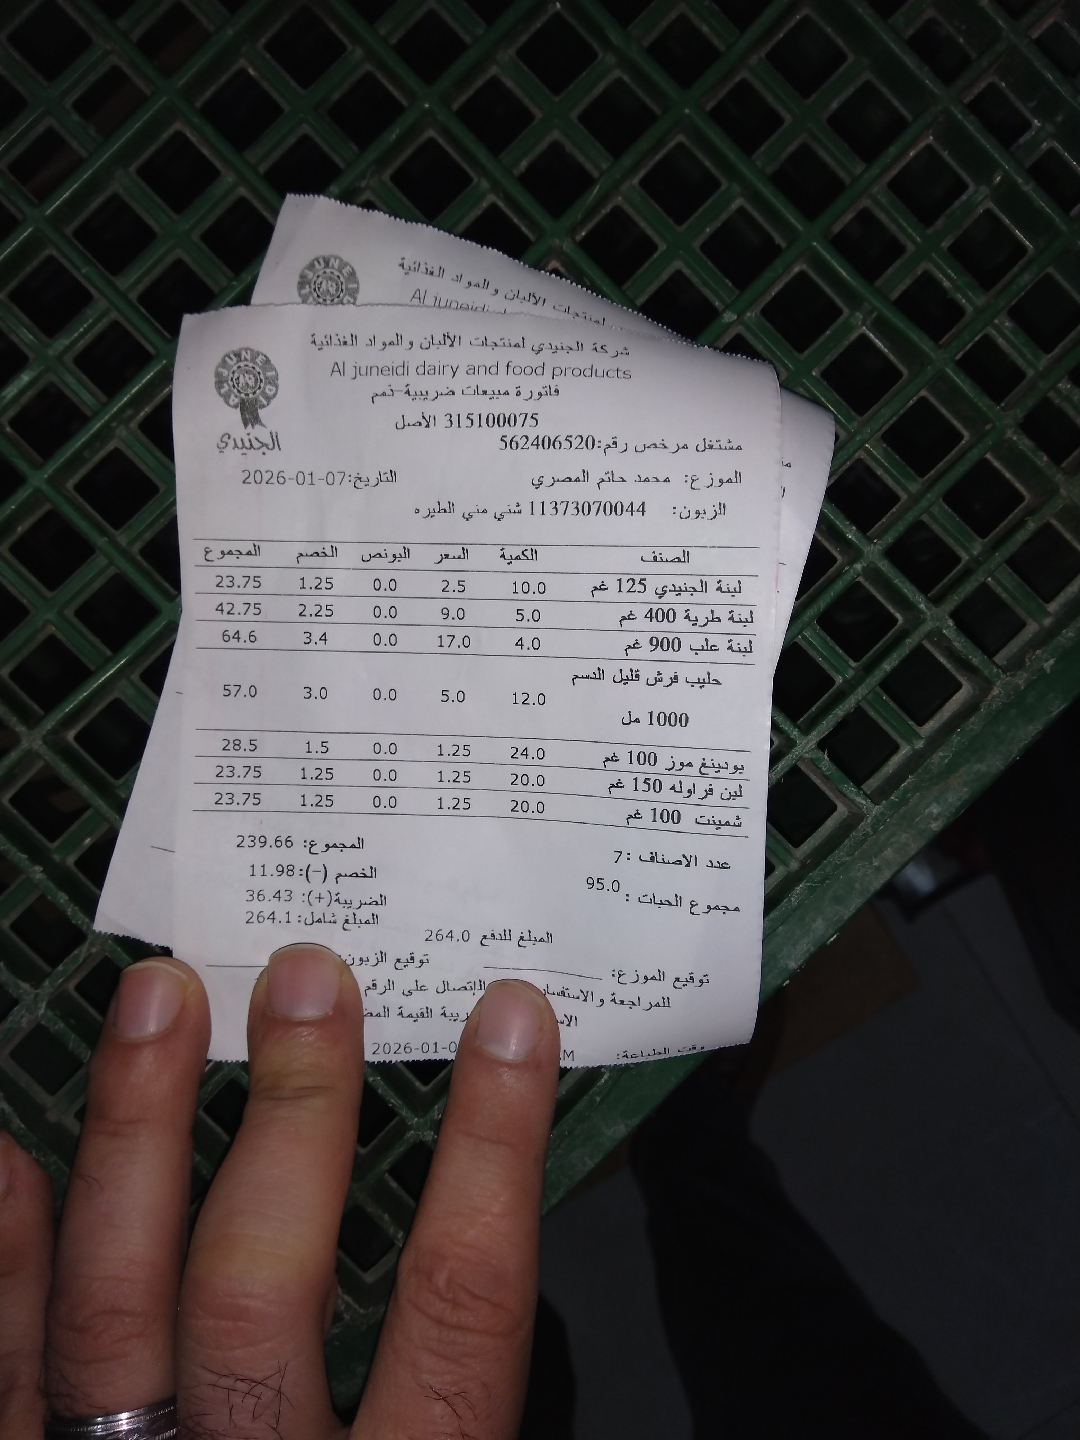 منتجات الألبان والمواد الغذائية
Al juneidi
شركة الجنيدي لمنتجات الألبان والمواد الغذائية
Al juneidi dairy and food products
فاتورة مبيعات ضريبية-ذمم
315100075 الأصل
الجنيدي
مشتغل مرخص رقم:562406520
الموزع: محمد حاتم المصري التاريخ:2026-01-07
الزبون: 11373070044 شني مني الطيره
الصنف الكمية السعر البونص الخصم المجموع
لبنة الجنيدي 125 غم 10.0 2.5 0.0 1.25 23.75
لبنة طرية 400 غم 5.0 9.0 0.0 2.25 42.75
لبنة علب 900 غم 4.0 17.0 0.0 3.4 64.6
حليب فرش قليل الدسم
1000 مل 12.0 5.0 0.0 3.0 57.0
بودينغ موز 100 غم 24.0 1.25 0.0 1.5 28.5
لبن فراوله 150 غم 20.0 1.25 0.0 1.25 23.75
شمينت 100 غم 20.0 1.25 0.0 1.25 23.75
عدد الاصناف :7 المجموع: 239.66
مجموع الحبات : 95.0 الخصم (-):11.98
الضريبة(+): 36.43
المبلغ شامل: 264.1
المبلغ للدفع 264.0
توقيع الموزع: توقيع الزبون:
للمراجعة والاستفسار الإتصال على الرقم
القيمة
وقت الطباعة: 2026-01-0